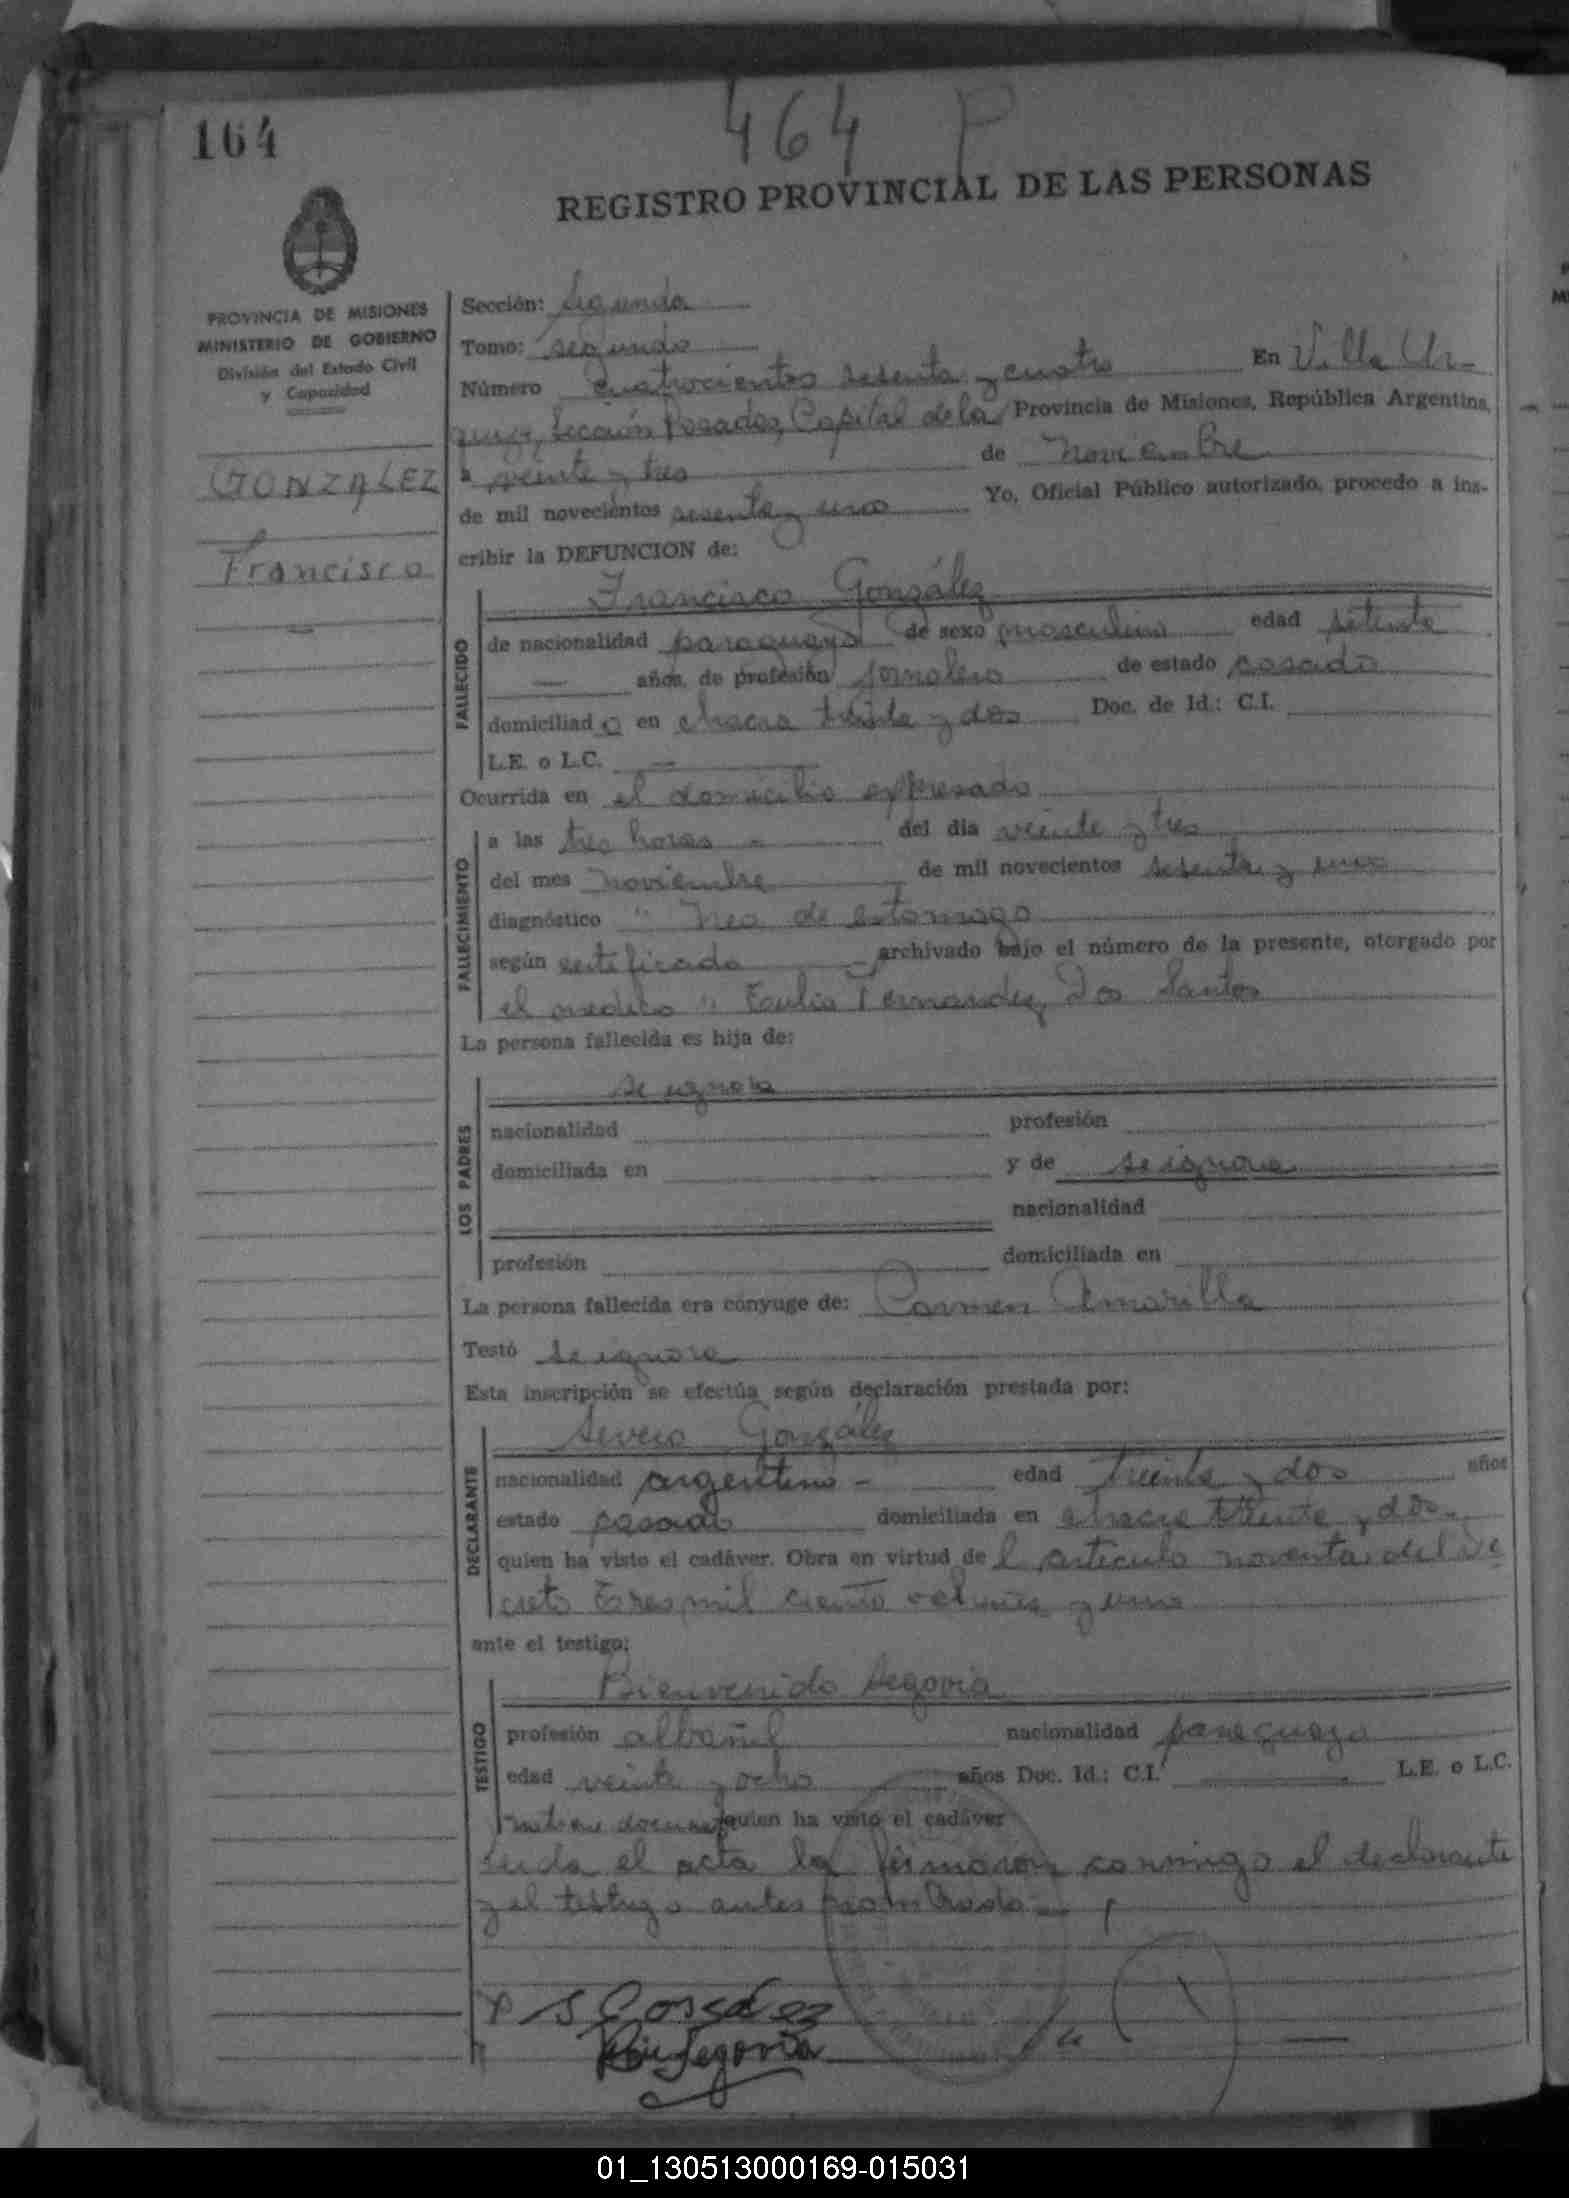 164
464 P
REGISTRO PROVINCIAL DE LAS PERSONAS
PROVINCIA DE MISIONES
MINISTERIO DE GOBIERNO
División del Estado Civil
y Capacidad
GONZALEZ
Francisco
Sección: Segunda
Tomo: segundo
Número cuatrocientos sesenta y cuatro En Villa Ur-
quiza, Sección Posadas, Capital de la Provincia de Misiones, República Argentina,
a veinte y tres de noviembre
de mil novecientos sesenta y uno Yo, Oficial Público autorizado, procedo a ins-
cribir la DEFUNCION de:
Francisco González
FALLECIDO
de nacionalidad paraguaya de sexo masculino edad setenta
años, de profesión jornalero de estado casado
domiciliado en chacra treinta y dos Doc. de Id.: C.I.
L.E. o L.C. —
Ocurrida en el domicilio expresado
FALLECIMIENTO
a las tres horas - del día veinte y tres
del mes noviembre de mil novecientos sesenta y uno
diagnóstico " Neo de estomago
según certificado archivado bajo el número de la presente, otorgado por
el medico " Fernandez Dos Santos
La persona fallecida es hija de:
LOS PADRES
se ignora
nacionalidad profesión
domiciliada en y de se ignora
nacionalidad
profesión domiciliada en
La persona fallecida era cónyuge de: Carmen Amarilla
Testó se ignora
Esta inscripción se efectúa según declaración prestada por:
DECLARANTE
Severo González
nacionalidad argentino - edad treinta y dos años
estado casado domiciliada en chacra treinta y dos
quien ha visto el cadáver. Obra en virtud del articulo noventa del De
creto tres mil ciento ochenta y uno
ante el testigo:
TESTIGO
Bienvenido Segovia
profesión albañil nacionalidad paraguaya
edad veinte y ocho años Doc. Id.: C.I. L.E. o L.C.
quien ha visto el cadáver
Leida el acta la firmaron conmigo el declarante
y el testigo antes nombrado
S Gonsález
Bien Segovia
01_130513000169-015031